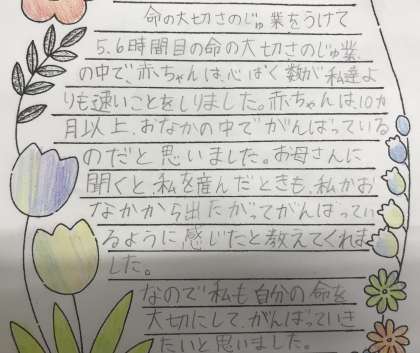 命の大切さのじゅ業をうけて
5.6時間目の命の大切さのじゅ業
の中で、赤ちゃんは、心ぱく数が私達よ
りも速いことをしりました。赤ちゃんは10カ
月以上、おなかの中でがんばっている
のだと思いました。お母さんに
聞くと、私を産んだときも、私がお
なかから出たがってがんばってい
るように感じたと教えてくれま
した。
なので私も自分の命を
大切にして、がんばっていき
たいと思いました。